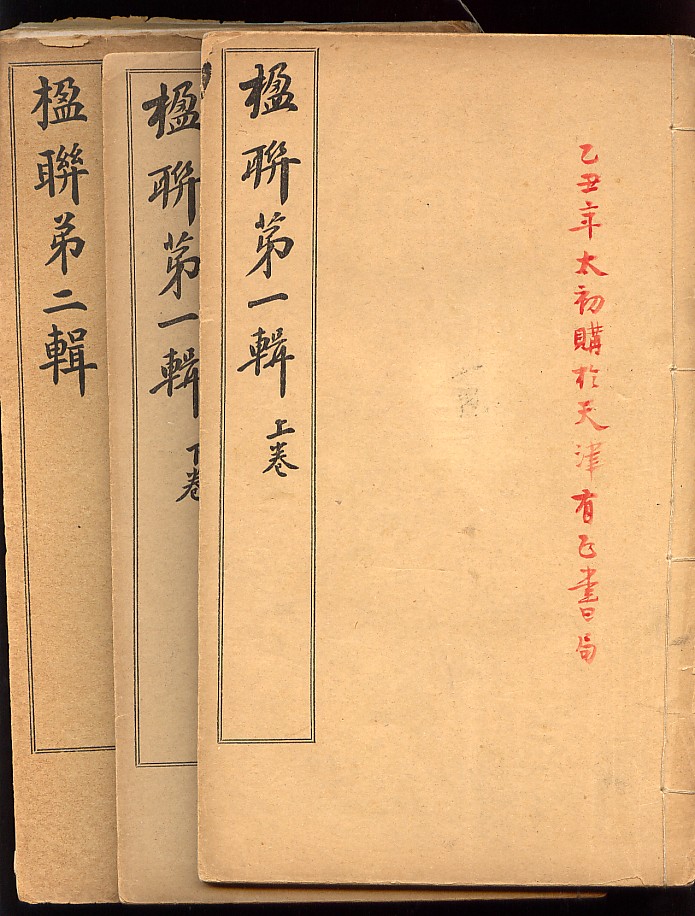 乙丑年太初購於天津有正書局
楹聯苐一輯 上卷
楹聯苐一輯 下卷
楹聯弟二輯